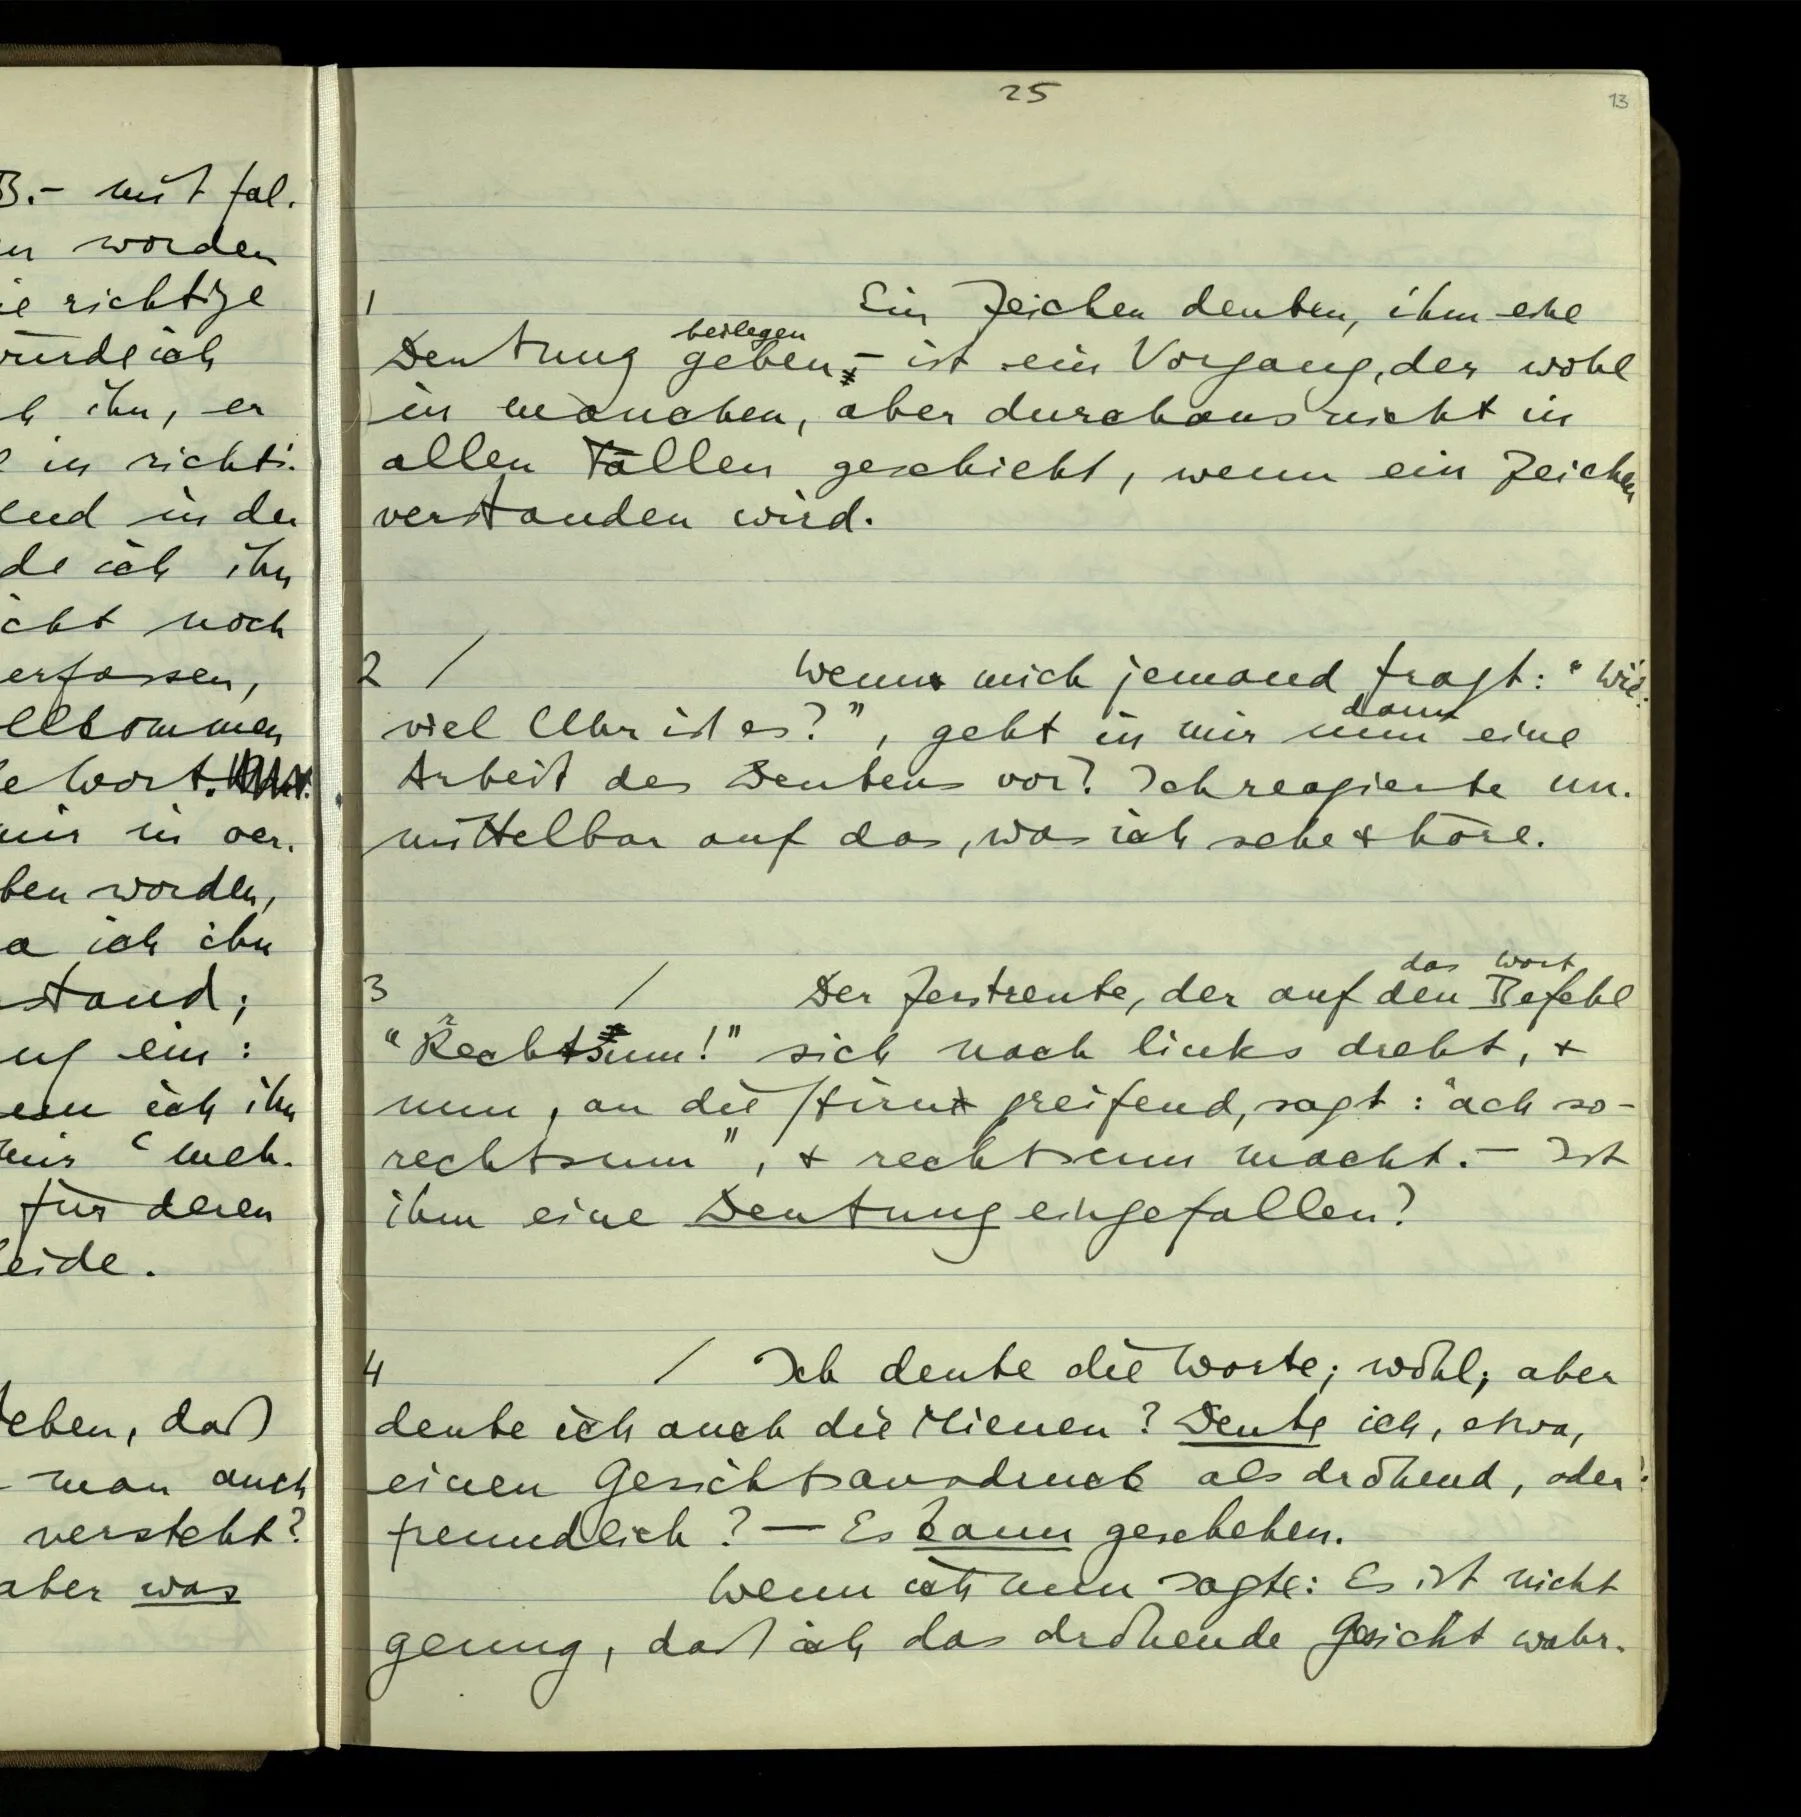 B.- mit fal.
worden
richtige
würde ich
ihn, er
in richti.
in der
ich ihn
noch
erfassen,
Wort.
mir in ver.
worden,
ich ihn
ein:
ich ihn
für deren
eben, daß
man auch
versteht?
aber was
25
13
1
Ein Zeichen deuten, ihm eine
beilegen
Deutung geben, – ist ein Vorgang, der wohl
in manchen, aber durchaus nicht in
allen Fällen geschieht, wenn ein Zeichen
verstanden wird.
2 / Wenn mich jemand fragt: "Wie=
dann
viel Uhr ist es?", geht in mir nun eine
Arbeit des Deutens vor? Ich reagierte un-
mittelbar auf das, was ich sehe & höre.
das Wort
3 / Der Zerstreute, der auf den Befehl
"Rechtsum!" sich nach links dreht, &
nun, an die Stirn greifend, sagt: "ach so –
rechtsum", & rechtsum macht. – Ist
ihm eine Deutung eingefallen?
4 / Ich deute die Worte; wohl; aber
deute ich auch die Mienen? Deute ich, etwa,
einen Gesichtsausdruck als drohend, oder
freundlich? — Es kann geschehen.
Wenn ich nun sagte: Es ist nicht
genug, daß ich das drohende Gesicht wahr-